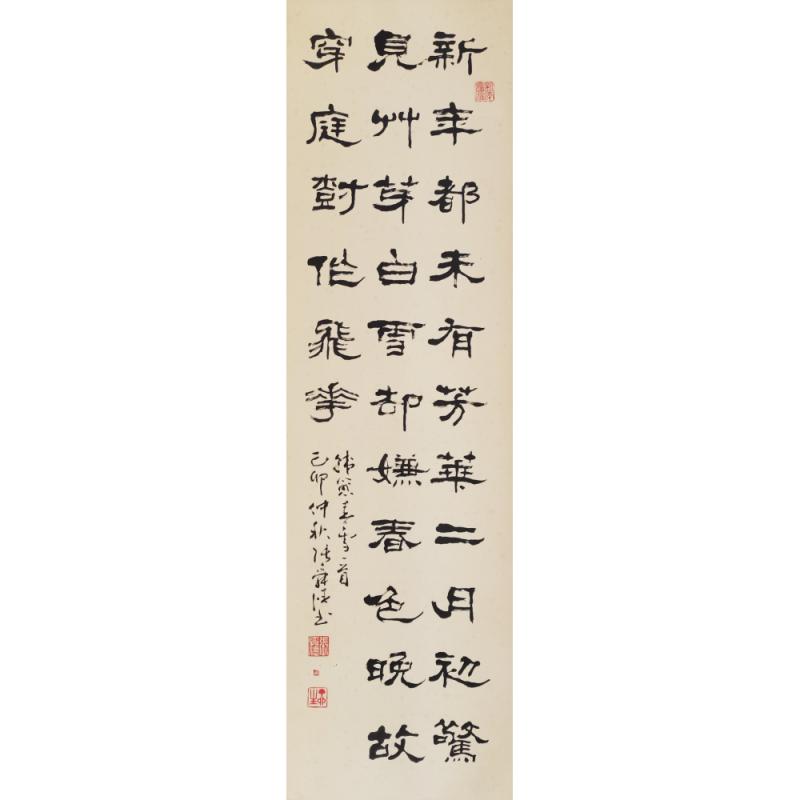 新年都未有芳華二月初驚
見艸芽白雪却嫌春色晚故
穿庭尌作飛花
韓愈春雪一首
己卯仲秋張舜清书